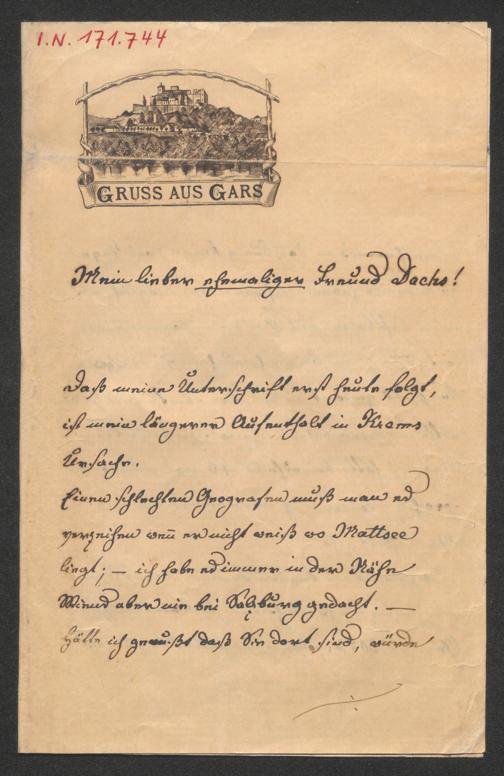 I.N. 171.744
GRUSS AUS GARS
Mein lieber ehemaliger Freund Dachs!
Daß meine Unterschrift erst heute folgt,
ist mein längerer Aufenthalt in Krems
Ursache.
Einen schlechten Geografen muß man es
verzeihen weñ er nicht weiß wo Mattsee
liegt; — ich habe es immer in der Nähe
Wiens aber nie bei Salzburg gedacht. —
Hätte ich gewußt daß Sie dort sind, würde